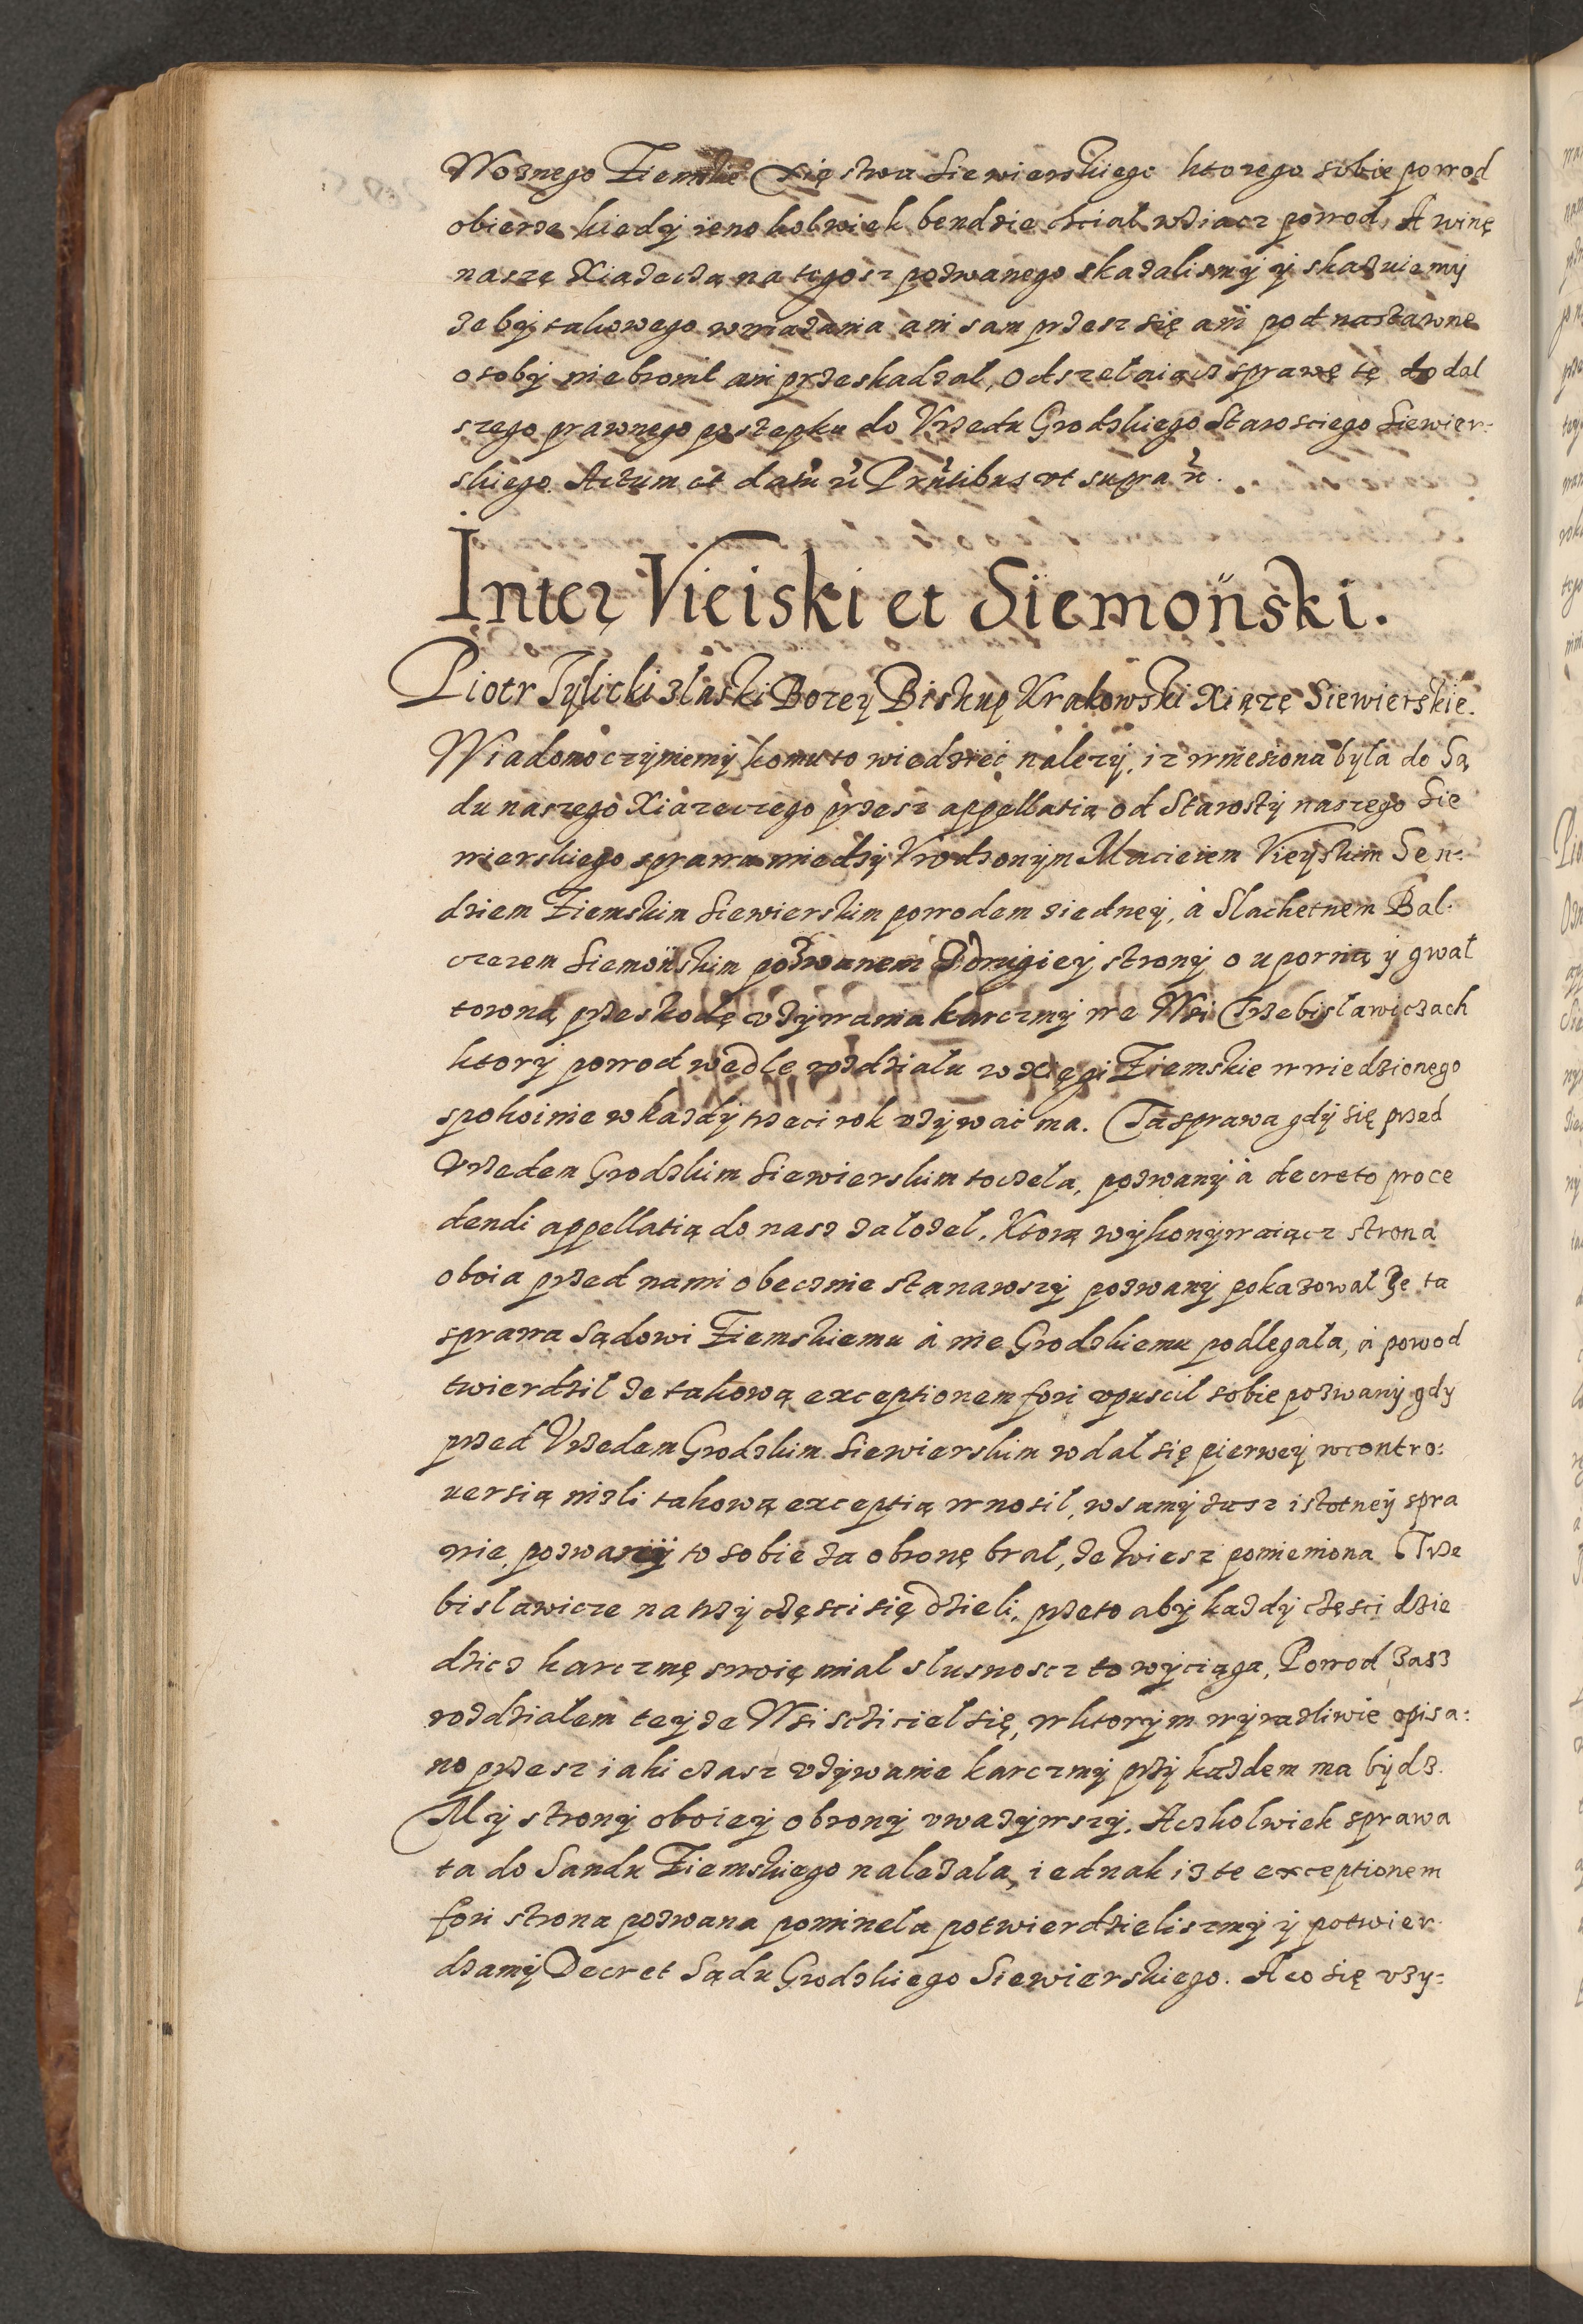 Woznego Ziemskie Xięstwa Siewierskiego ktorego sobie powod
obierze kiedy ieno kolwiek bendzie chcial wziacz powod, A winę
naszę Xiazeczą na tegosz pozwanego skazalismy y skazuiemy
zeby takowego wwiazania ani sam przesz się ani pod nastawne
osoby niebronil ani przeskadzal, Odszełaiącz sprawę tę do dal
szego prawnego postepku do Vrzedu Grodzkiego Starosciego Siewier:
skiego. Actum et datu ut Pntibus ut supra
Inter Vieiski et Siemoński.
Piotr Tylicki z laski Bozey Biskup Krakowski Xiązę Siewierskie.
Wiadomo czyniemy komu to wiedziec nalezy, iz wniesiona była do Są
du naszego Xiazeczego przesz appellatią od Starosty naszego Sie
wierskiego sprawa miedzy Vrodzonym Maciejem Vieyskim Sen:
dziem Ziemskim Siewierskim powodem z iedney, à Slachetnem Bal:
czezem Siemońskim pozwanem z drugiey strony o upornią y gwal
towną przeskodę vzywania karczmy we Wsi Trzebislawiczach
ktory powod wedle rozdzialu w Xięgi Ziemskie wwiedzionego
spokoinie w kazdy trzeci rok vzywać ma. Ta sprawa gdy się przed
Vrzedem Grodzkim Siewierskim toczela, pozwany à decreto proce
dendi appellatią do nasz zalozel, Ktorą wykonywaiącz strona
oboia przed nami obecznie stanawszy pozwany pokazowal ze ta
sprawa Sądowi Ziemskiemu à nie Grodzkiemu podlegała, à powod
twierdzil ze takową exceptionem fori opuscil sobie pozwany gdy
przed Vrzedem Grodzkim Siewierskim wdal się pierwey w contro:
uersią nizli takową exceptią wnosil, w samy zasz istotney spra
wie, pozwany to sobie za obronę bral, ze wiesz pomieniona Trze
bislawicze na trzy częsci się dzieli, przeto aby kazdy częsci dzie
dzicz karczmę swoię mial slusnoscz to wyciąga, Powod zasz
rozdzialem teyze Wsi scziciel się, w ktorym wyrazliwie opisa:
no przesz iaki czasz vzywanie karczmy przy kazdem ma bydz.
My strony oboiey obrony vwazywszy, Aczkolwiek sprawa
ta do Sandu Ziemskiego nalezala, iednak iz te exceptionem
fori strona pozwana pominela potwierdzieliszmy y potwier
dzamy Decret Sądu Grodzkiego Siewierskiego. A co się vzy=